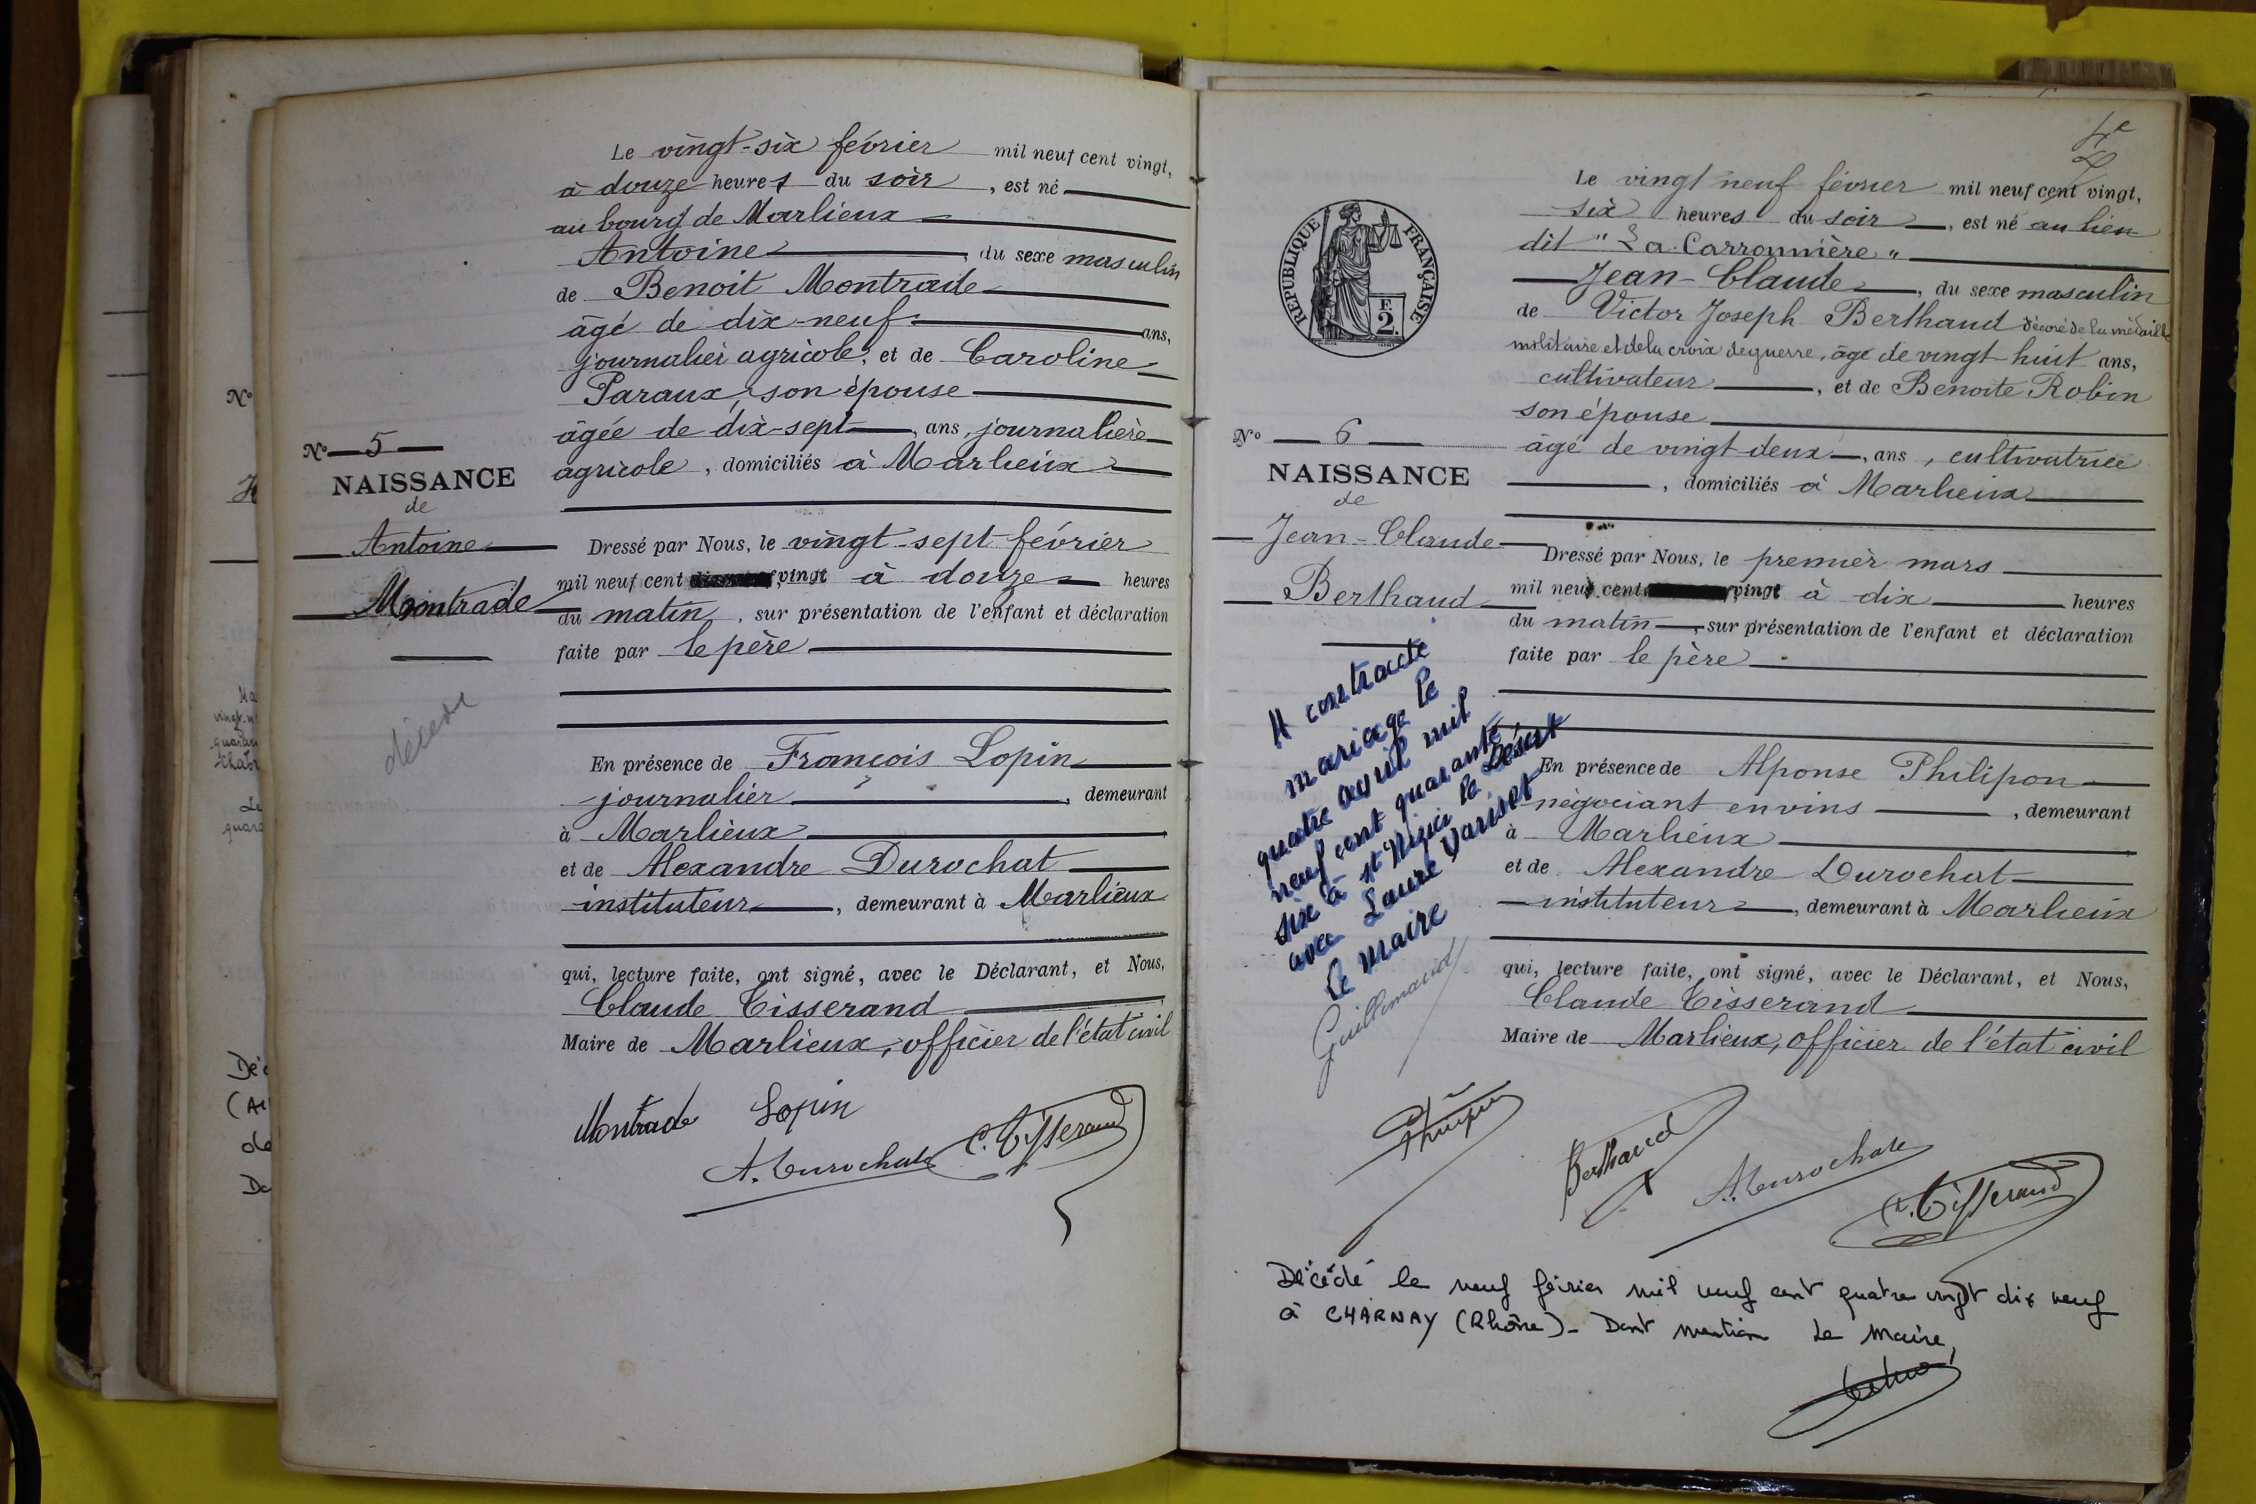 Le vingt-six février mil neuf cent vingt,
à douze heures du soir, est né
au bourg de Marlieux
Antoine, du sexe masculin
de Benoit Montrade
âgé de dix-neuf ans,
journalier agricole, et de Caroline
Paraux, son épouse
âgée de dix-sept, ans, journalière
agricole, domiciliés à Marlieux
N° 5
NAISSANCE
de
Antoine
Montrade
décédé
Dressé par Nous, le vingt-sept février
mil neuf cent vingt à douze heures
du matin, sur présentation de l'enfant et déclaration
faite par le père
En présence de François Lopin
journalier, demeurant
à Marlieux
et de Alexandre Durochat
instituteur, demeurant à Marlieux
qui, lecture faite, ont signé, avec le Déclarant, et Nous,
Claude Tisserand
Maire de Marlieux, officier de l'état civil
Montrade Lopin
A. Durochat C. Tisserand
N°
4e
RÉPUBLIQUE FRANÇAISE
F
2
Le vingt neuf février mil neuf cent vingt,
six heures du soir, est né au lieu
dit "La Carronnière"
Jean-Claude, du sexe masculin
de Victor Joseph Berthaud décoré de la médaille
militaire et de la croix de guerre, âgé de vingt huit ans,
cultivateur, et de Benoite Robin
son épouse
âgé de vingt deux, ans, cultivatrice
, domiciliés à Marlieux
N° 6
NAISSANCE
de
Jean-Claude
Berthaud
Dressé par Nous, le premier mars
mil neuf cent vingt à dix heures
du matin, sur présentation de l'enfant et déclaration
faite par le père
A contracté
mariage le
quatre avril mil
neuf cent quarante
six à St Nizier le Désert
avec Laure Variset
le maire
Guillemaud
En présence de Alponse Philipon
négociant en vins, demeurant
à Marlieux
et de Alexandre Durochat
instituteur, demeurant à Marlieux
qui, lecture faite, ont signé, avec le Déclarant, et Nous,
Claude Tisserand
Maire de Marlieux, officier de l'état civil
Berthaud A. Durochat
C. Tisserand
Décédé le neuf février mil neuf cent quatre vingt dix neuf
à CHARNAY (Rhône) - Dont mention Le Maire,